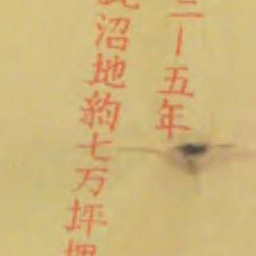 二ー五年
沼地約七万坪